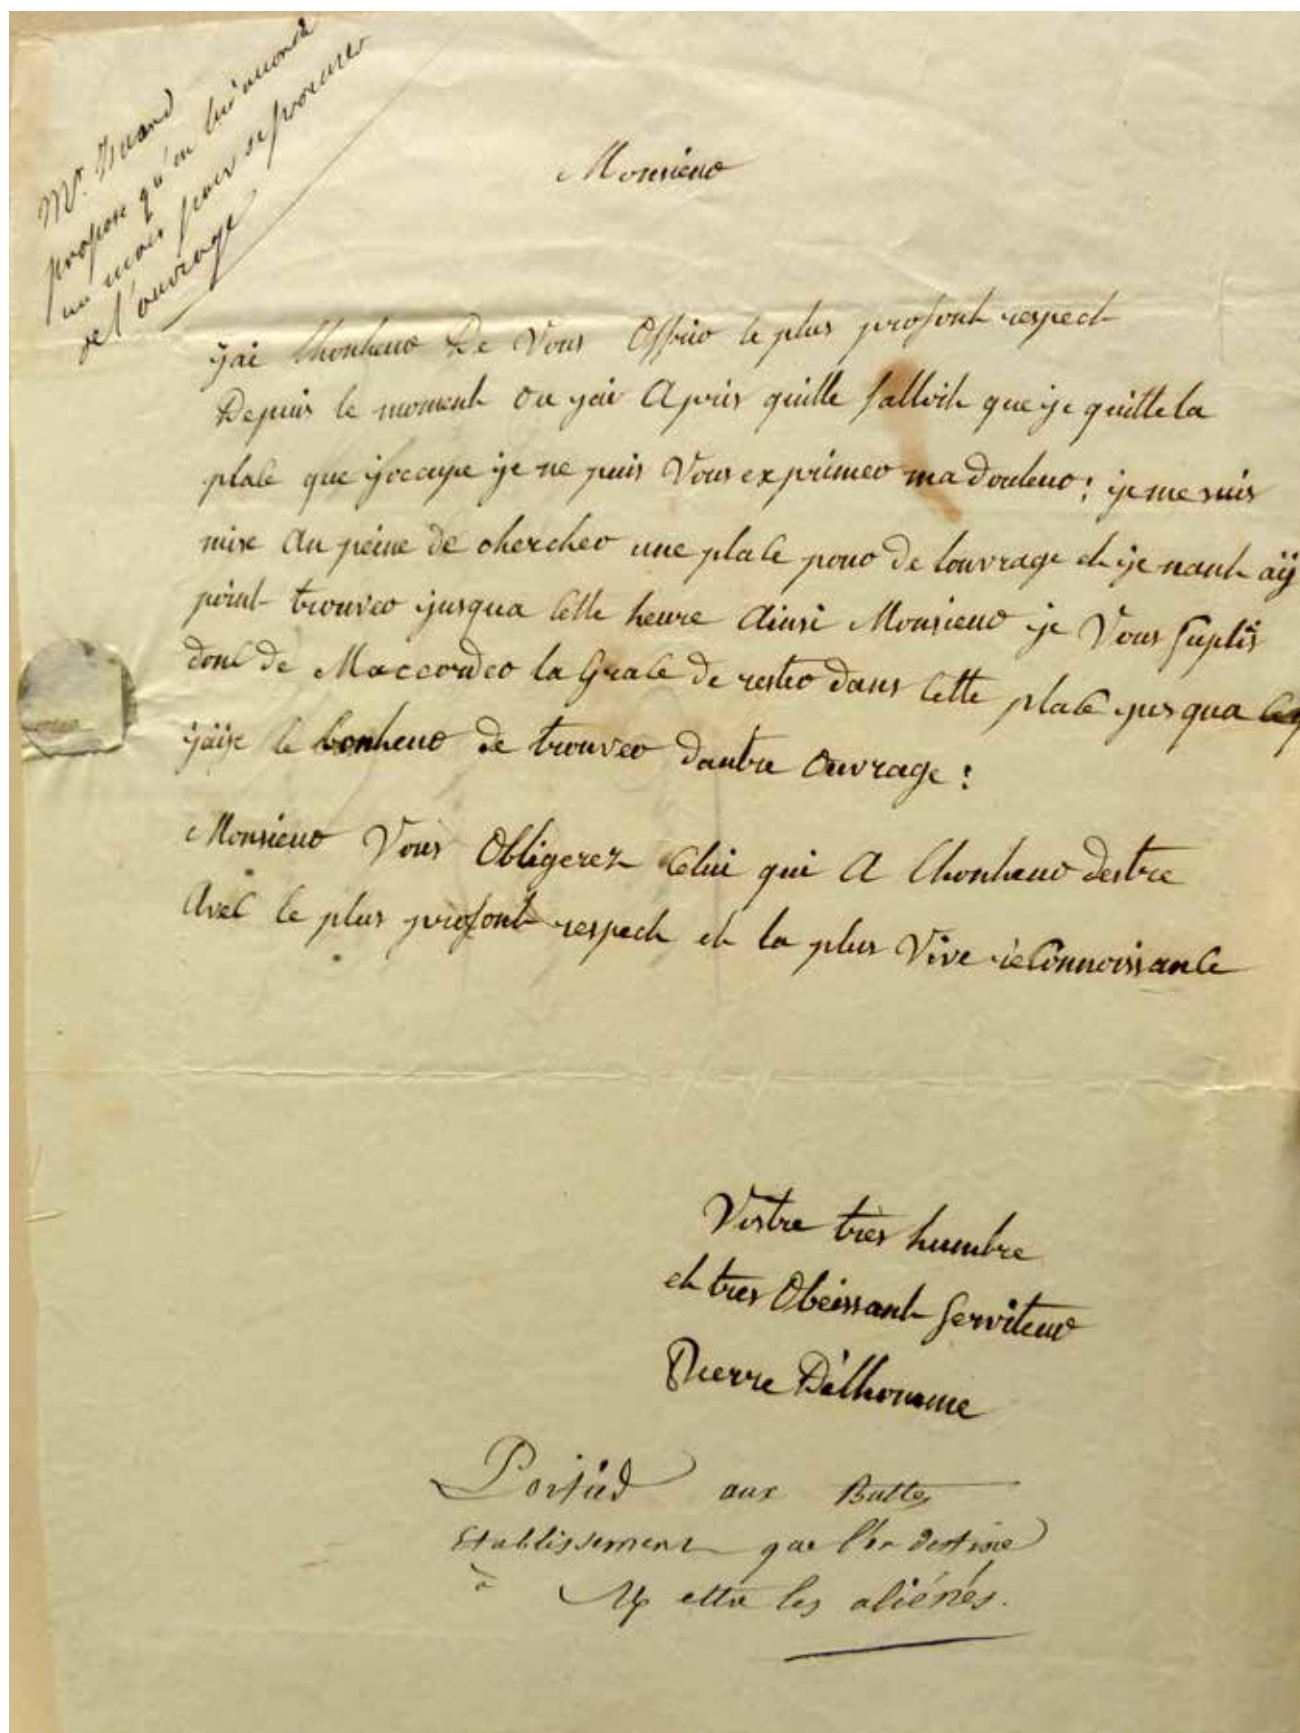 propose qu'on lui accorde
un mois pour se procurer
de l'ouvrage
Monsieur
jai lhonheur De Vous Offrir le plus profont respect
Depuis le moment ou jai Apris quille falloit que je quitte la
place que joccupe je ne puis Vous exprimer ma douleur : je me suis
mise au peine de chercher une place pour de louvrage et je nant aÿ
point trouver jusqua cette heure Ainsi Monsieur je Vous Suplis
donc de Maccorder la Grace de rester dans cette place jusqua
jaije le bonheur de trouver dautre Ouvrage :
Monsieur Vous Obligerez Celui qui A lhonheur destre
Avec le plus profont respect et la plus Vive reConnoissance
Vostre très humbre
et tres Obeissant Serviteur
Pierre Délhomme
aux Buttes
Etablissement que l'on destine
à Mettre les aliénés.